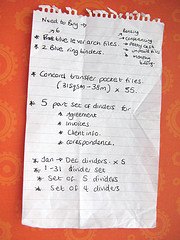 Need to Buy →
x6
* Blue lever arch files.
* 2 Blue ring binders.
* Concord transfer pocket files.
(315gsm - 38m) x 55.
* 5 part set of dividers for
* Agreement
* Invoices
* Client info.
* correspondence.
* Jan → Dec dividers x 5
* 1-31 divider set
* Set of 5 dividers
* Set of 4 dividers
Petty cash